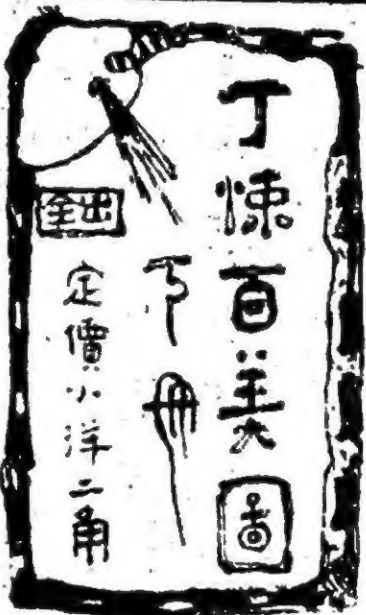 丁悚百美圖
下冊
出全
定價小洋二角